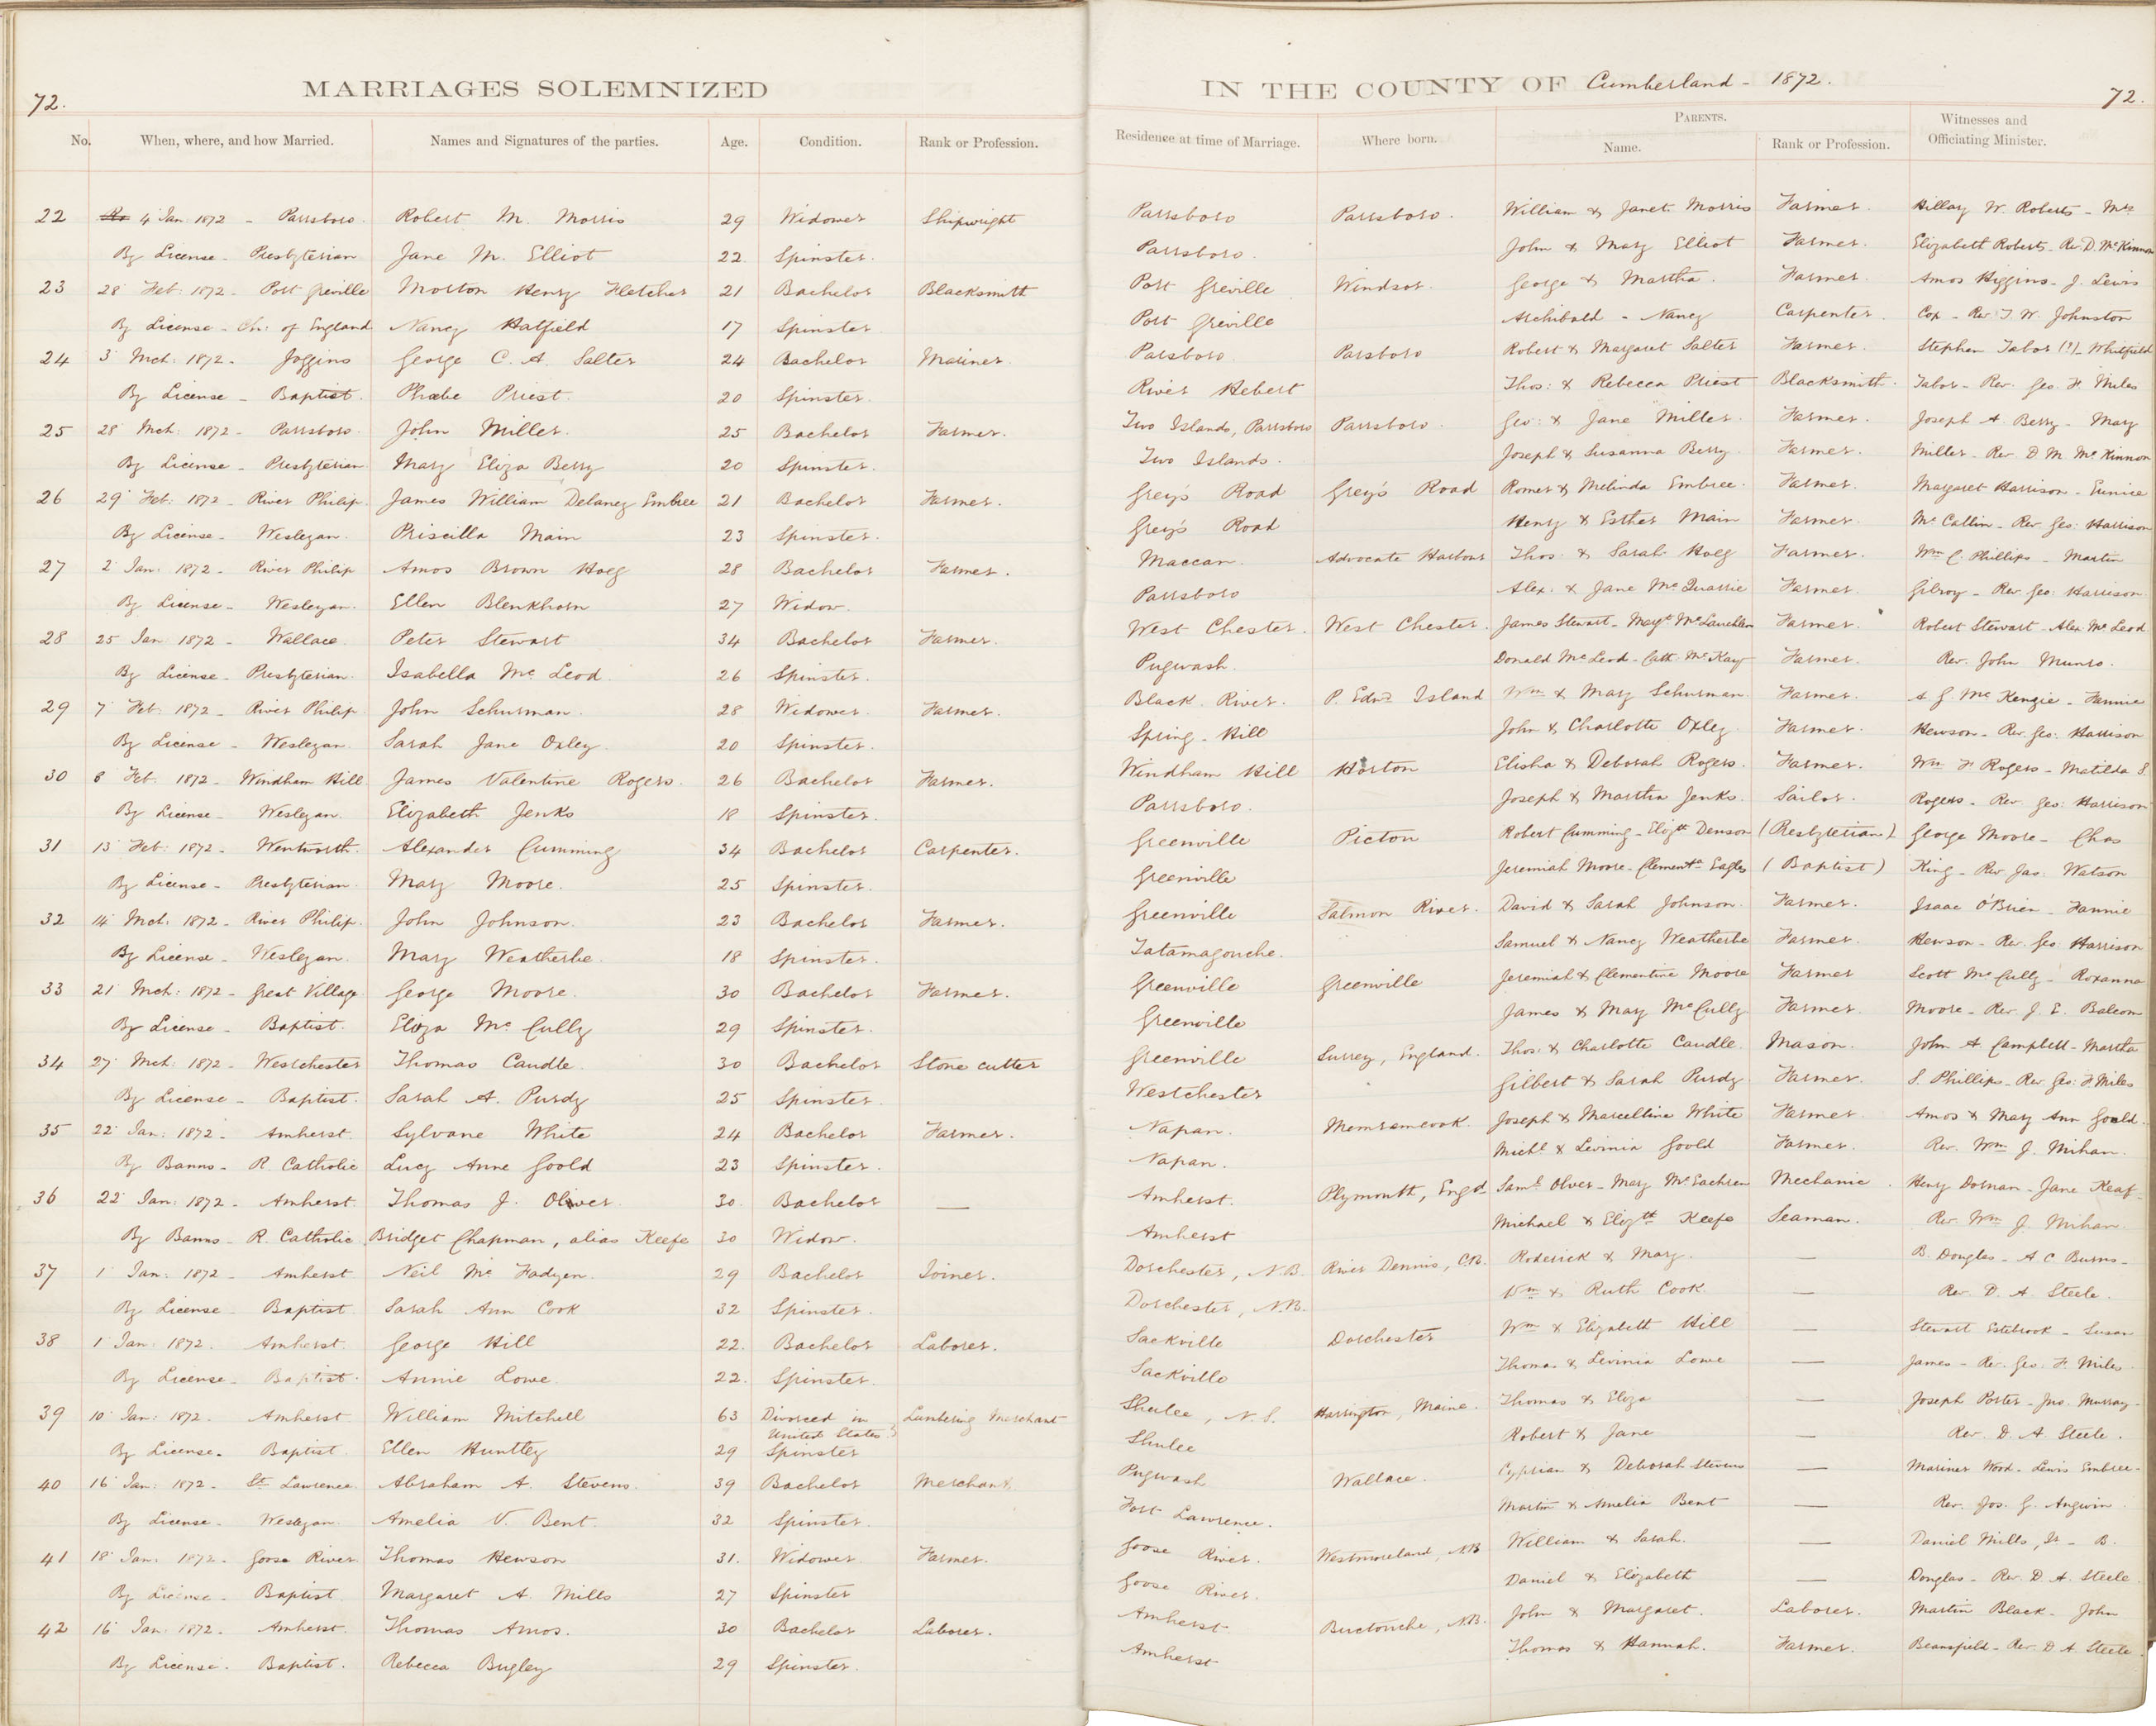 MARRIAGES SOLEMNIZED IN THE COUNTY OF Cumberland - 1872.
72. 72.
No. When, where, and how Married. Names and Signatures of the parties. Age. Condition. Rank or Profession. Residence at time of Marriage. Where born. PARENTS. Name. Rank or Profession. Witnesses and Officiating Minister.
22 4 Jan 1872 - Parrsboro. Robert M. Morris 29 Widower Shipwright Parrsboro Parrsboro. William & Janet Morris Farmer. Hillary W. Roberts - Mrs
By License - Presbyterian Jane M. Elliot 22 Spinster. Parrsboro. John & Mary Elliot Farmer. Elizabeth Roberts - Rev. D. McKinnon
23 28 Feb: 1872 - Port Greville Morton Henry Fletcher 21 Bachelor Blacksmith Port Greville Windsor. George & Martha. Farmer. Amos Higgins - J. Lewis
By License - Ch: of England Nancy Hatfield 17 Spinster Port Greville Archibald - Nancy Carpenter. Cox - Rev. T. W. Johnston
24 3 Mch: 1872 - Joggins George C. A. Salter 24 Bachelor Mariner. Parsboro. Parsboro Robert & Margaret Salter Farmer. Stephen Tabor (?) - Whitfield
By License - Baptist. Phœbe Priest. 20 Spinster. River Hebert Thos: & Rebecca Priest Blacksmith. Tabor - Rev. Geo. F. Miles
25 28 Mch: 1872 - Parrsboro. John Miller. 25 Bachelor Farmer. Two Islands, Parrsboro Parrsboro. Geo: & Jane Miller. Farmer. Joseph A. Berry - Mary
By License - Presbyterian Mary Eliza Berry 20 Spinster. Two Islands. Joseph & Susanna Berry. Farmer. Miller - Rev. D. M. McKinnon
26 29 Feb: 1872 - River Philip. James William Delaney Embree 21 Bachelor Farmer. Grey's Road Grey's Road Romer & Melinda Embree. Farmer. Margaret Harrison - Eunice
By License - Wesleyan. Priscilla Main 23 Spinster. Grey's Road Henry & Esther Main Farmer. McCallin - Rev. Geo: Harrison
27 2 Jan: 1872 - River Philip Amos Brown Hoeg 28 Bachelor Farmer. Maccan. Advocate Harbour Thos: & Sarah Hoeg Farmer. Wm C. Phillips - Martin
By License - Wesleyan. Ellen Blenkhorn 27 Widow. Parrsboro Alex: & Jane McQuarrie Farmer. Gilroy - Rev. Geo: Harrison.
28 25 Jan 1872 - Wallace. Peter Stewart 34 Bachelor Farmer. West Chester. West Chester. James Stewart - Margt McLauchlan Farmer. Robert Stewart - Alex. McLeod
By License - Presbyterian. Isabella McLeod. 26 Spinster. Pugwash. Donald McLeod - Cath. McKay Farmer. Rev. John Munro.
29 7 Feb: 1872 - River Philip. John Schurman. 28 Widower. Farmer. Black River. P. Edwd Island Wm & Mary Schurman. Farmer. A G. McKenzie - Fannie
By License - Wesleyan. Sarah Jane Oxley. 20 Spinster. Spring-Hill John & Charlotte Oxley. Farmer. Hewson - Rev. Geo: Harrison
30 8 Feb. 1872 - Windham Hill James Valentine Rogers. 26 Bachelor Farmer. Windham Hill Horton Elisha & Deborah Rogers. Farmer. Wm F. Rogers - Matilda S.
By License - Wesleyan. Elizabeth Jenks 18 Spinster. Parrsboro. Joseph & Martha Jenks. Sailor. Rogers - Rev. Geo: Harrison
31 13 Feb: 1872 - Wentworth. Alexander Cumming 34 Bachelor Carpenter. Greenville Pictou Robert Cumming - Elizth Denson (Presbyterian) George Moore - Chas
By License - Presbyterian. Mary Moore. 25 Spinster. Greenville Jeremiah Moore - Clementa Eagles (Baptist) King - Rev. Jas: Watson
32 14 Mch: 1872 - River Philip. John Johnson. 23 Bachelor Farmer. Greenville Salmon River. David & Sarah Johnson. Farmer. Isaac O'Brien - Fannie
By License - Wesleyan. Mary Weatherbe. 18 Spinster. Tatamagouche. Samuel & Nancy Weatherbe Farmer. Hewson - Rev. Geo: Harrison
33 21 Mch: 1872 - Great Village George Moore. 30 Bachelor Farmer. Greenville Greenville Jeremiah & Clementine Moore Farmer Scott McCully - Roxanna
By License - Baptist. Eliza McCully 29 Spinster. Greenville James & Mary McCully Farmer. Moore - Rev. J. E. Balcom
34 27 Mch: 1872 - Westchester Thomas Caudle. 30 Bachelor Stone cutter Greenville Surrey, England. Thos: & Charlotte Caudle. Mason. John A. Campbell - Martha
By License - Baptist. Sarah A. Purdy 25 Spinster. Westchester Gilbert & Sarah Purdy. Farmer. S. Phillips - Rev. Geo: F. Miles
35 22 Jan: 1872 - Amherst. Sylvane White 24 Bachelor Farmer. Napan. Memramcook. Joseph & Marcelline White Farmer. Amos & Mary Ann Goold.
By Banns - R. Catholic Lucy Anne Goold 23 Spinster. Napan. Michl & Levinia Goold Farmer. Rev. Wm J. Mihan.
36 22 Jan: 1872 - Amherst. Thomas J. Oliver. 30 Bachelor — Amherst. Plymouth, Engd Saml Olver - Mary McEachren Mechanic. Henry Dornan - Jane Keaf-
By Banns - R. Catholic. Bridget Chapman, alias Keefe 30 Widow. Amherst Michael & Elizth Keefe Seaman. Rev. Wm J. Mihan.
37 1 Jan: 1872 - Amherst Neil McFadyen. 29 Bachelor Joiner. Dorchester, N.B. River Dennis, C.B. Roderick & Mary. — B. Dougles - A C Burns -
By License - Baptist. Sarah Ann Cook 32 Spinster. Dorchester, N.B. Wm & Ruth Cook. — Rev. D. A. Steele.
38 1 Jan: 1872. Amherst. George Hill 22. Bachelor Laborer. Sackville Dorchester Wm & Elizabeth Hill — Stewart Estebrook - Susan
By License - Baptist. Annie Lowe. 22. Spinster. Sackville Thomas & Levinia Lowe — James - Rev. Geo. F. Miles.
39 10 Jan: 1872. Amherst William Mitchell 63 Divorced in United States Lumbering Merchant Shulee, N.S. Harrington, Maine. Thomas & Eliza — Joseph Porter - Jno. Murray -
By License. Baptist. Ellen Huntley 29 Spinster Shulee Robert & Jane — Rev. D. A. Steele.
40 16 Jan: 1872. St Lawrence. Abraham A. Stevens. 39 Bachelor Merchant. Pugwash Wallace. Cyprian & Deborah Stevens — Mariner Wood - Lewis Embree -
By License. Wesleyan. Amelia V. Bent. 32 Spinster. Fort Lawrence. Martin & Amelia Bent — Rev. Jos. G. Angwin.
41 18 Jan: 1872. Goose River. Thomas Hewson 31. Widower Farmer. Goose River. Westmoreland, N.B William & Sarah. — Daniel Mills, Sr - B.
By License - Baptist. Margaret A. Mills 27 Spinster Goose River. Daniel & Elizabeth — Douglas - Rev. D A. Steele.
42 16 Jan: 1872. Amherst. Thomas Amos. 30 Bachelor Laborer. Amherst. Buctouche, N.B. John & Margaret. Laborer. Martin Black - John
By License. Baptist. Rebecca Bugley 29 Spinster. Amherst Thomas & Hannah. Farmer. Beansfield - Rev. D. A. Steele.